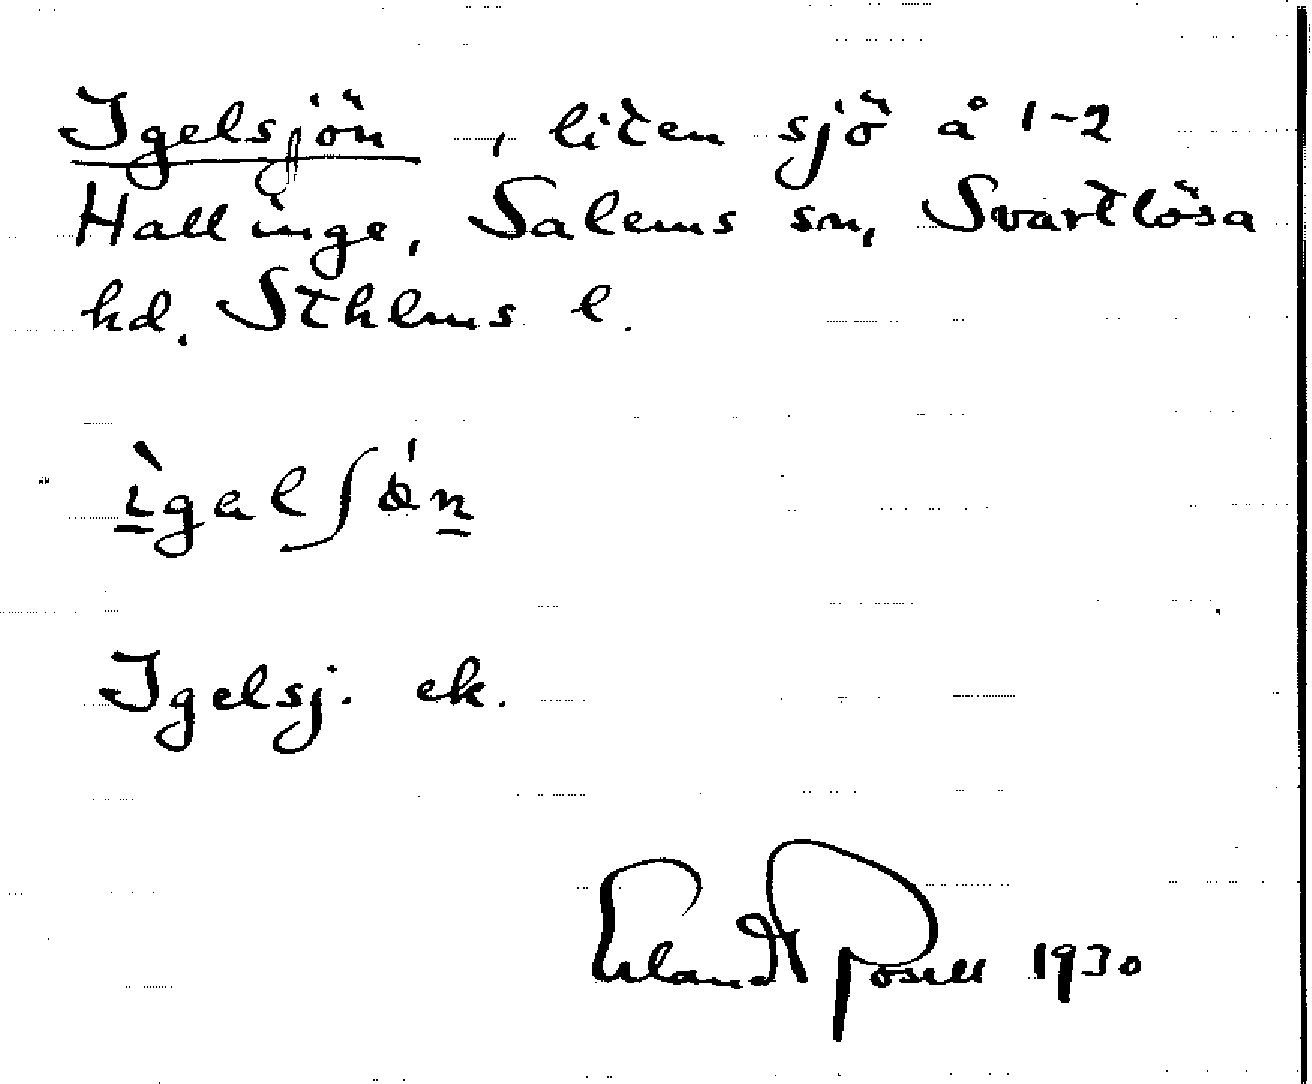 Igelsjön, liten sjö å 1-2
Hallinge, Salems sn, Svartlösa
hd. Sthlms l.
ìgalʃǿn
Igelsj. ek.
Erland Rosell 1930